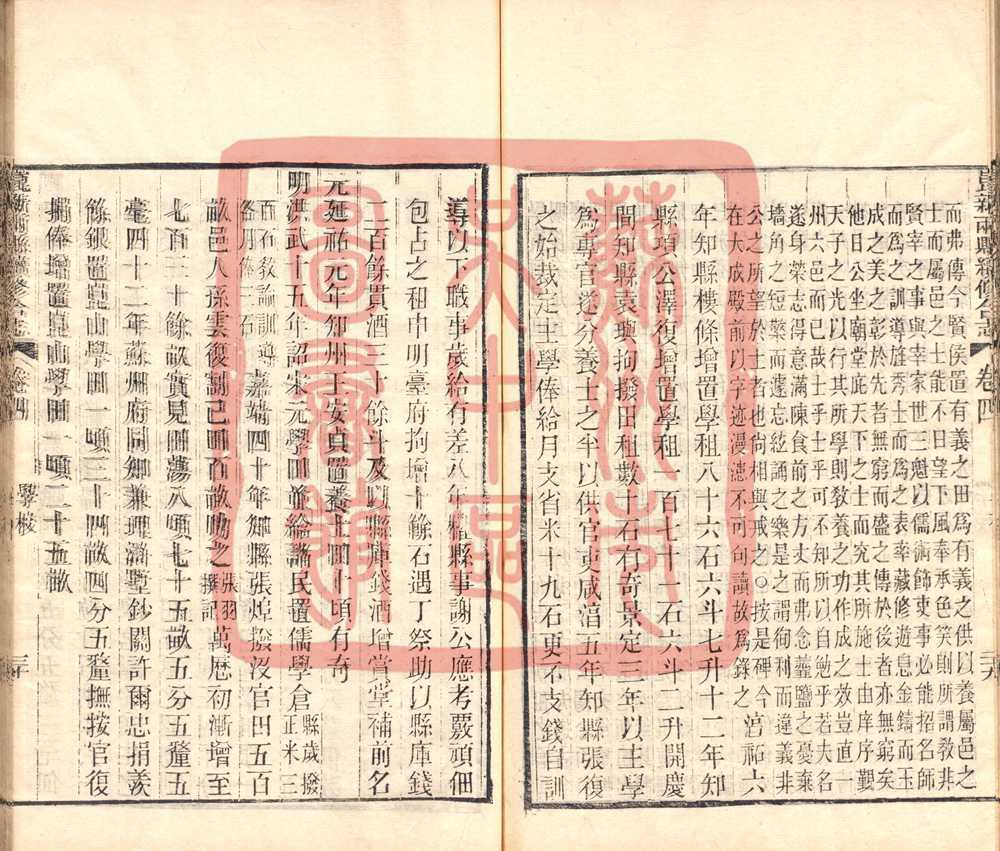 崑新兩縣續修合志 卷四 三九
而弗傳今賢侯置有義之田為有義之供以養屬邑之
士而屬邑之士能不日望下風奉承色笑則所謂教非
賢宰之事與宰家世三魁以儒術飾吏事必能招名師
而為之訓導旌秀士而為之表率藏修遊息金鑄而玉
成之美之彰於先者無窮而盛之傳於後者亦無窮矣
他日公坐廟堂庇天下之士而究其所施士由庠序覲
天子之光以行其所學則敎養之功作成之效豈直一
州六邑而已故士乎士乎可不知所以自勉乎若夫名
遂身榮志得意滿陳食前之方丈而弗念虀鹽之憂棄
墻角之短檠而遽忘絃誦之樂是之謂徇利而違義非
公之所望於士者也尙相與戒之○按是碑今
在大成殿前以字迹漫漶不可句讀故為錄之
淳祐六
年知縣樓條增置學租八十六石六斗七升十二年知
縣項公澤復增置學租一百七十一石六斗二升開慶
間知縣袁璵拘撥田租數十石有奇景定三年以主學
為專官遂分養士之半以供官吏咸淳五年知縣張復
之始裁定主學俸給月支省米十九石更不支錢自訓
導以下職事歲給有差八年權縣事謝公應考覈頑佃
包占之租申明臺府拘增十餘石遇丁祭助以縣庫錢
二百餘貫酒三十餘斗及以縣庫錢酒增賞堂補前名
元延祐元年知州王安貞置養士田十頃有奇
明洪武十五年詔宋元學田並給諸民置儒學倉縣歲撥正米三
百石敎諭訓導各月俸二石嘉靖四十年知縣張焯撥沒官田五百
畝邑人孫雲復割己田百畝助之張羽撰記萬歷初漸增至
七百三十餘畝實見田蕩八頃七十五畝五分五釐五
毫四十二年蘇州府同知兼理滸墅鈔關許爾忠捐羨
餘銀置崑山學田一頃三十四畝四分五釐撫按官復
捐俸增置崑山學田一頃二十五畝
崑新兩縣續修合志 卷四 學校 三十